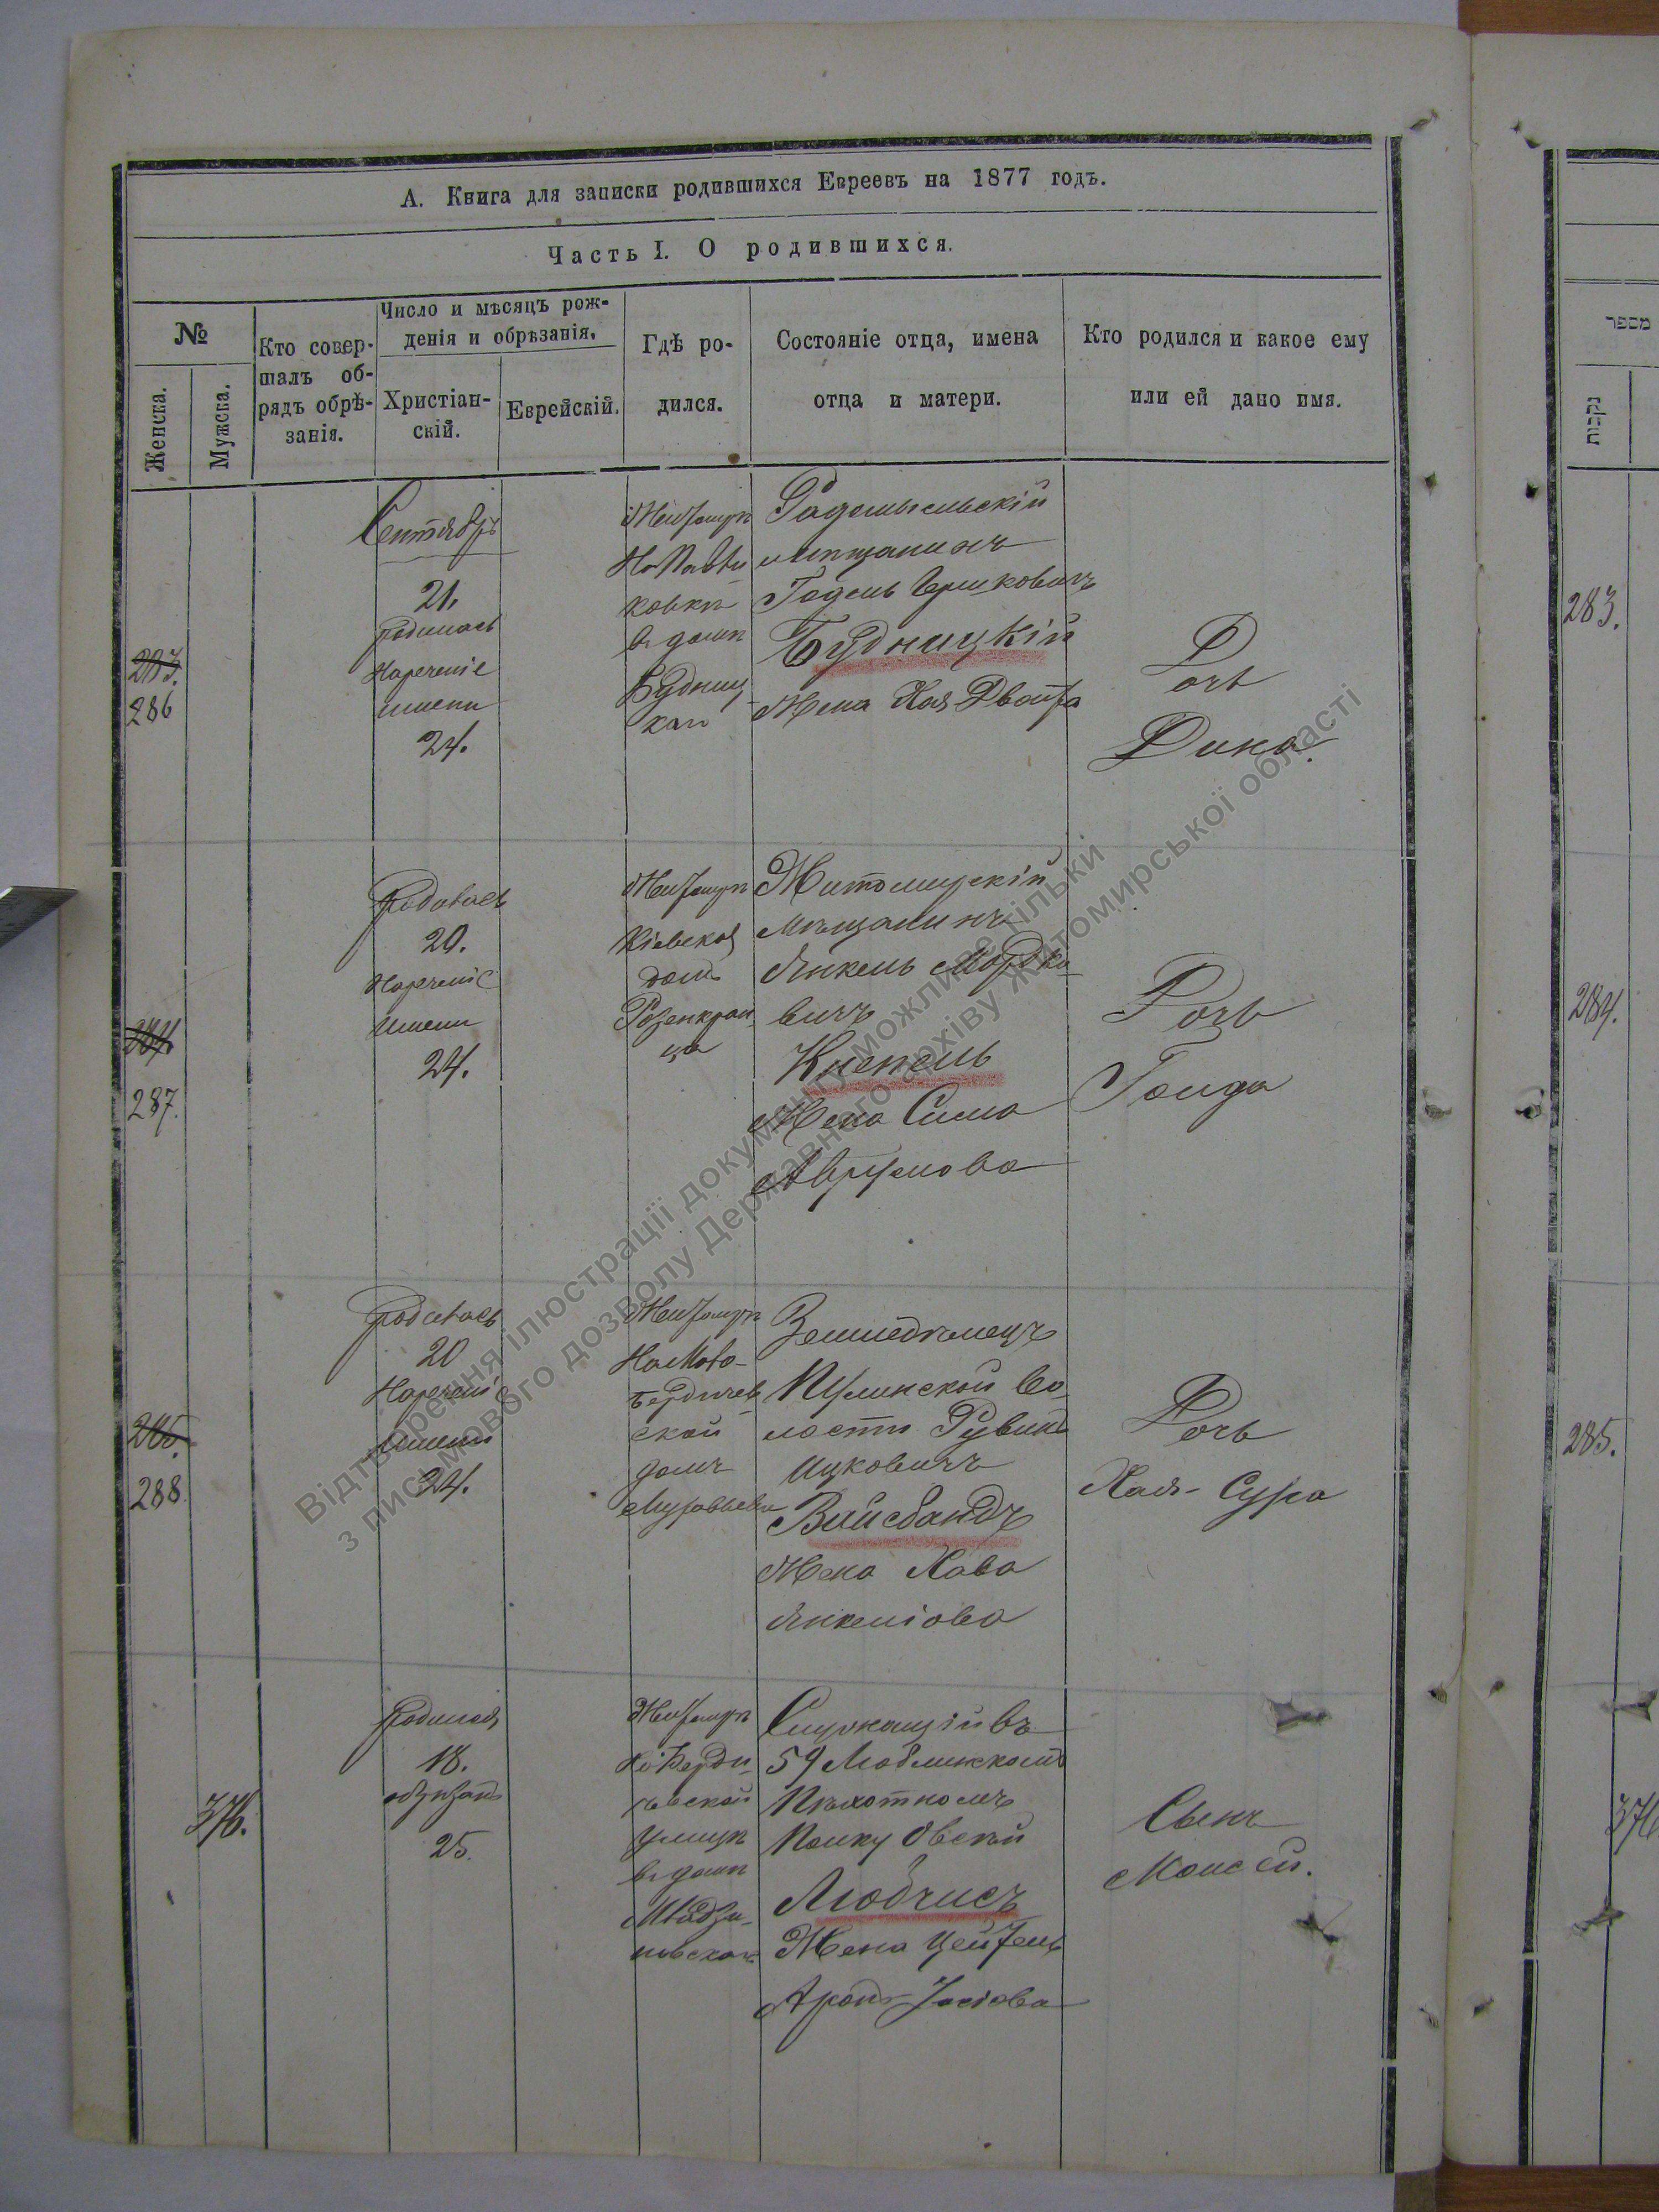 А. Книга для записки родившихся Евреевъ на 1877 годъ.
Часть I. О родившихся.
№
Женска.
Мужска.
Кто совер-
шалъ об-
рядъ обрѣ-
занія.
Число и мѣсяцъ рож-
денія и обрѣзанія.
Христіан-
скій.
Еврейскій.
Гдѣ ро-
дился.
Состояніе отца, имена
отца и матери.
Кто родился и какое ему
или ей дано имя.
283.
286
Сентябрь
21.
родилась
Наречение
имени
24.
На Павли
ковки
въ доми
Будниц
каго
Радомысльскій
мищанинъ
Годель Гершковичъ
Будницкій
Жена Хая Двойра
Дочь
Дина.
284
287.
Родилась
20.
Наречение
имени
24.
Кіевская
домъ
Розенкран
ца
Житомирскій
Мѣщанинъ
Янкель Мордко
вичъ
Кнепель
Жена Сима
Аврумова
Дочь
Голда
285.
288.
Родилась
20
Наречение
имени
24.
На Ново-
Бердичев
ской
домъ
Земледѣлецъ
Пулинской Во
лости Рувинъ
Ицковичъ
Вайсбандъ
Жена Хава
Янкеліова
Дочь
Хая-Сура
376.
Родился
18.
обрѣзанъ
25.
улицѣ
въ доми
Служащій въ
59 Люблинскомъ
Пѣхотномъ
Полку Овсѣй
Любчисъ
Жена Цейтель
Аронъ-Іосіова
Сынъ
Моисей.
מספר
נקבות
283.
284.
285.
376
Відтворення ілюстрації документу можливе тільки
з письмового дозволу Державного архіву Житомирської області